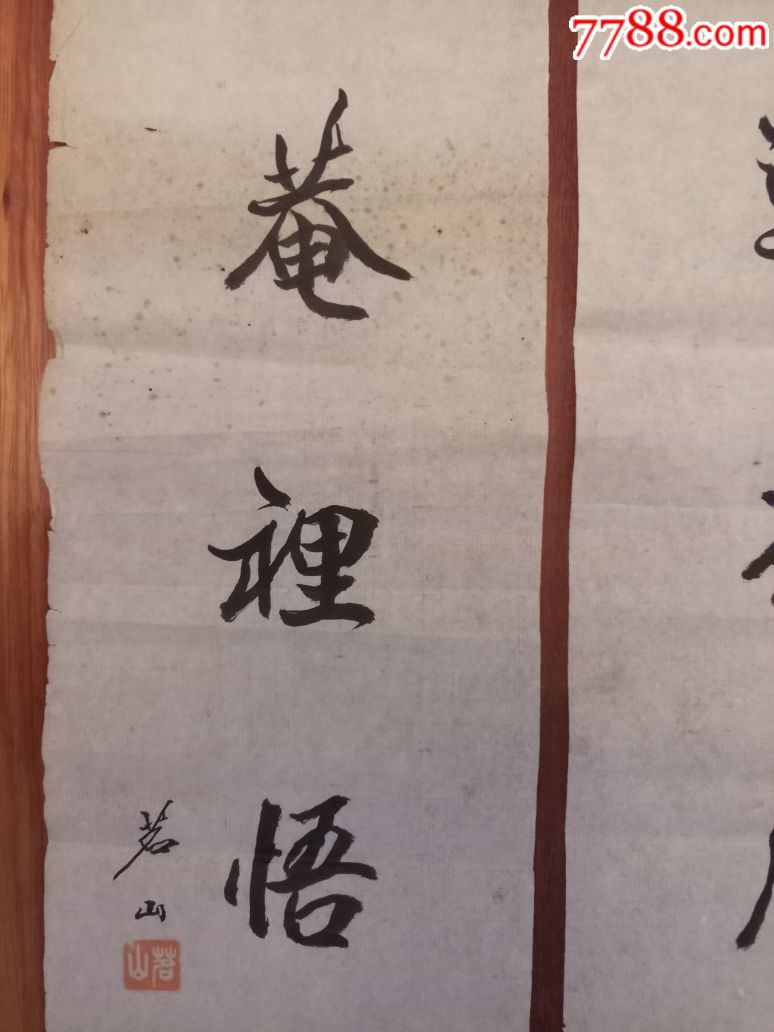 7788.com
菴裡悟
茗山
茗山